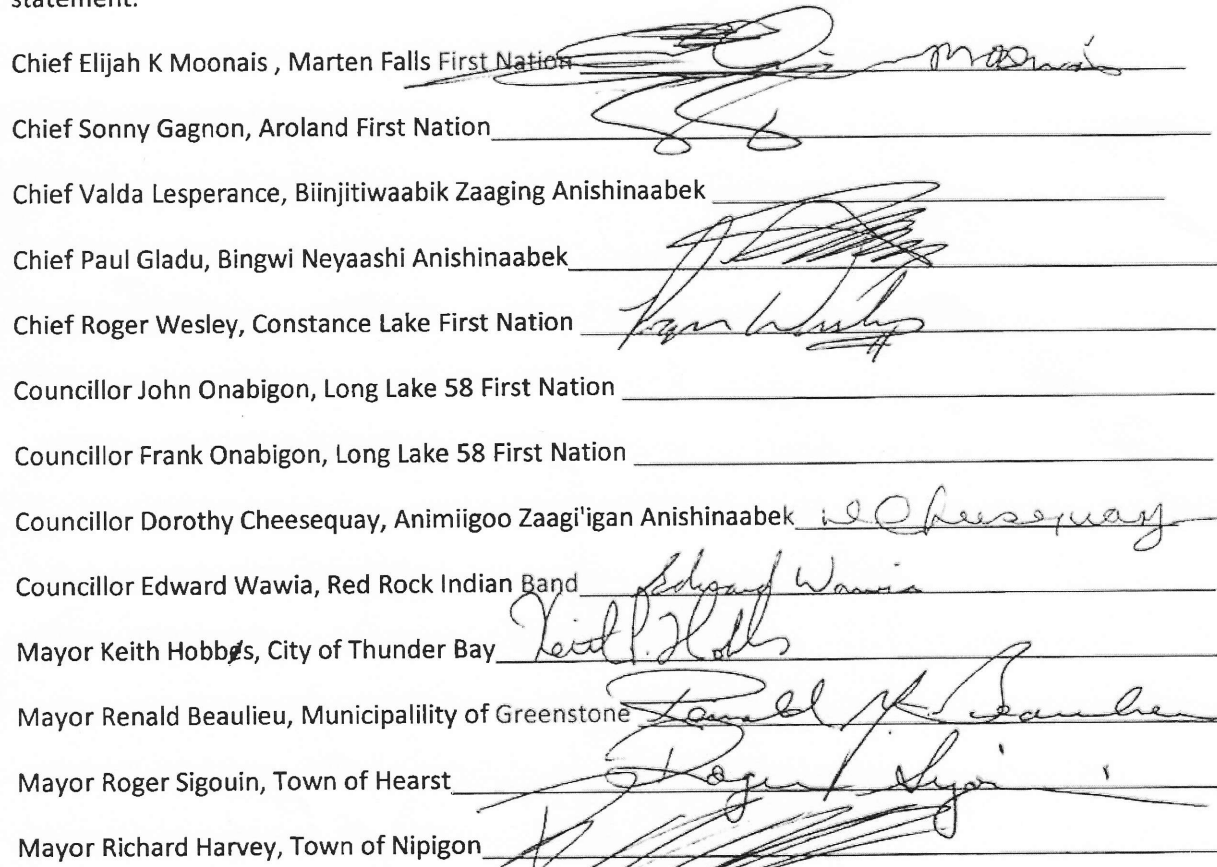 statement.
Chief Elijah K Moonais , Marten Falls First Nation Moonais
Chief Sonny Gagnon, Aroland First Nation
Chief Valda Lesperance, Biinjitiwaabik Zaaging Anishinaabek
Chief Paul Gladu, Bingwi Neyaashi Anishinaabek
Chief Roger Wesley, Constance Lake First Nation Roger Wesley
Councillor John Onabigon, Long Lake 58 First Nation
Councillor Frank Onabigon, Long Lake 58 First Nation
Councillor Dorothy Cheesequay, Animiigoo Zaagi'igan Anishinaabek D Cheesequay
Councillor Edward Wawia, Red Rock Indian Band Edward Wawia
Mayor Keith Hobbs, City of Thunder Bay Keith P. Hobbs
Mayor Renald Beaulieu, Municipalility of Greenstone Renald Beaulieu
Mayor Roger Sigouin, Town of Hearst Roger Sigouin
Mayor Richard Harvey, Town of Nipigon